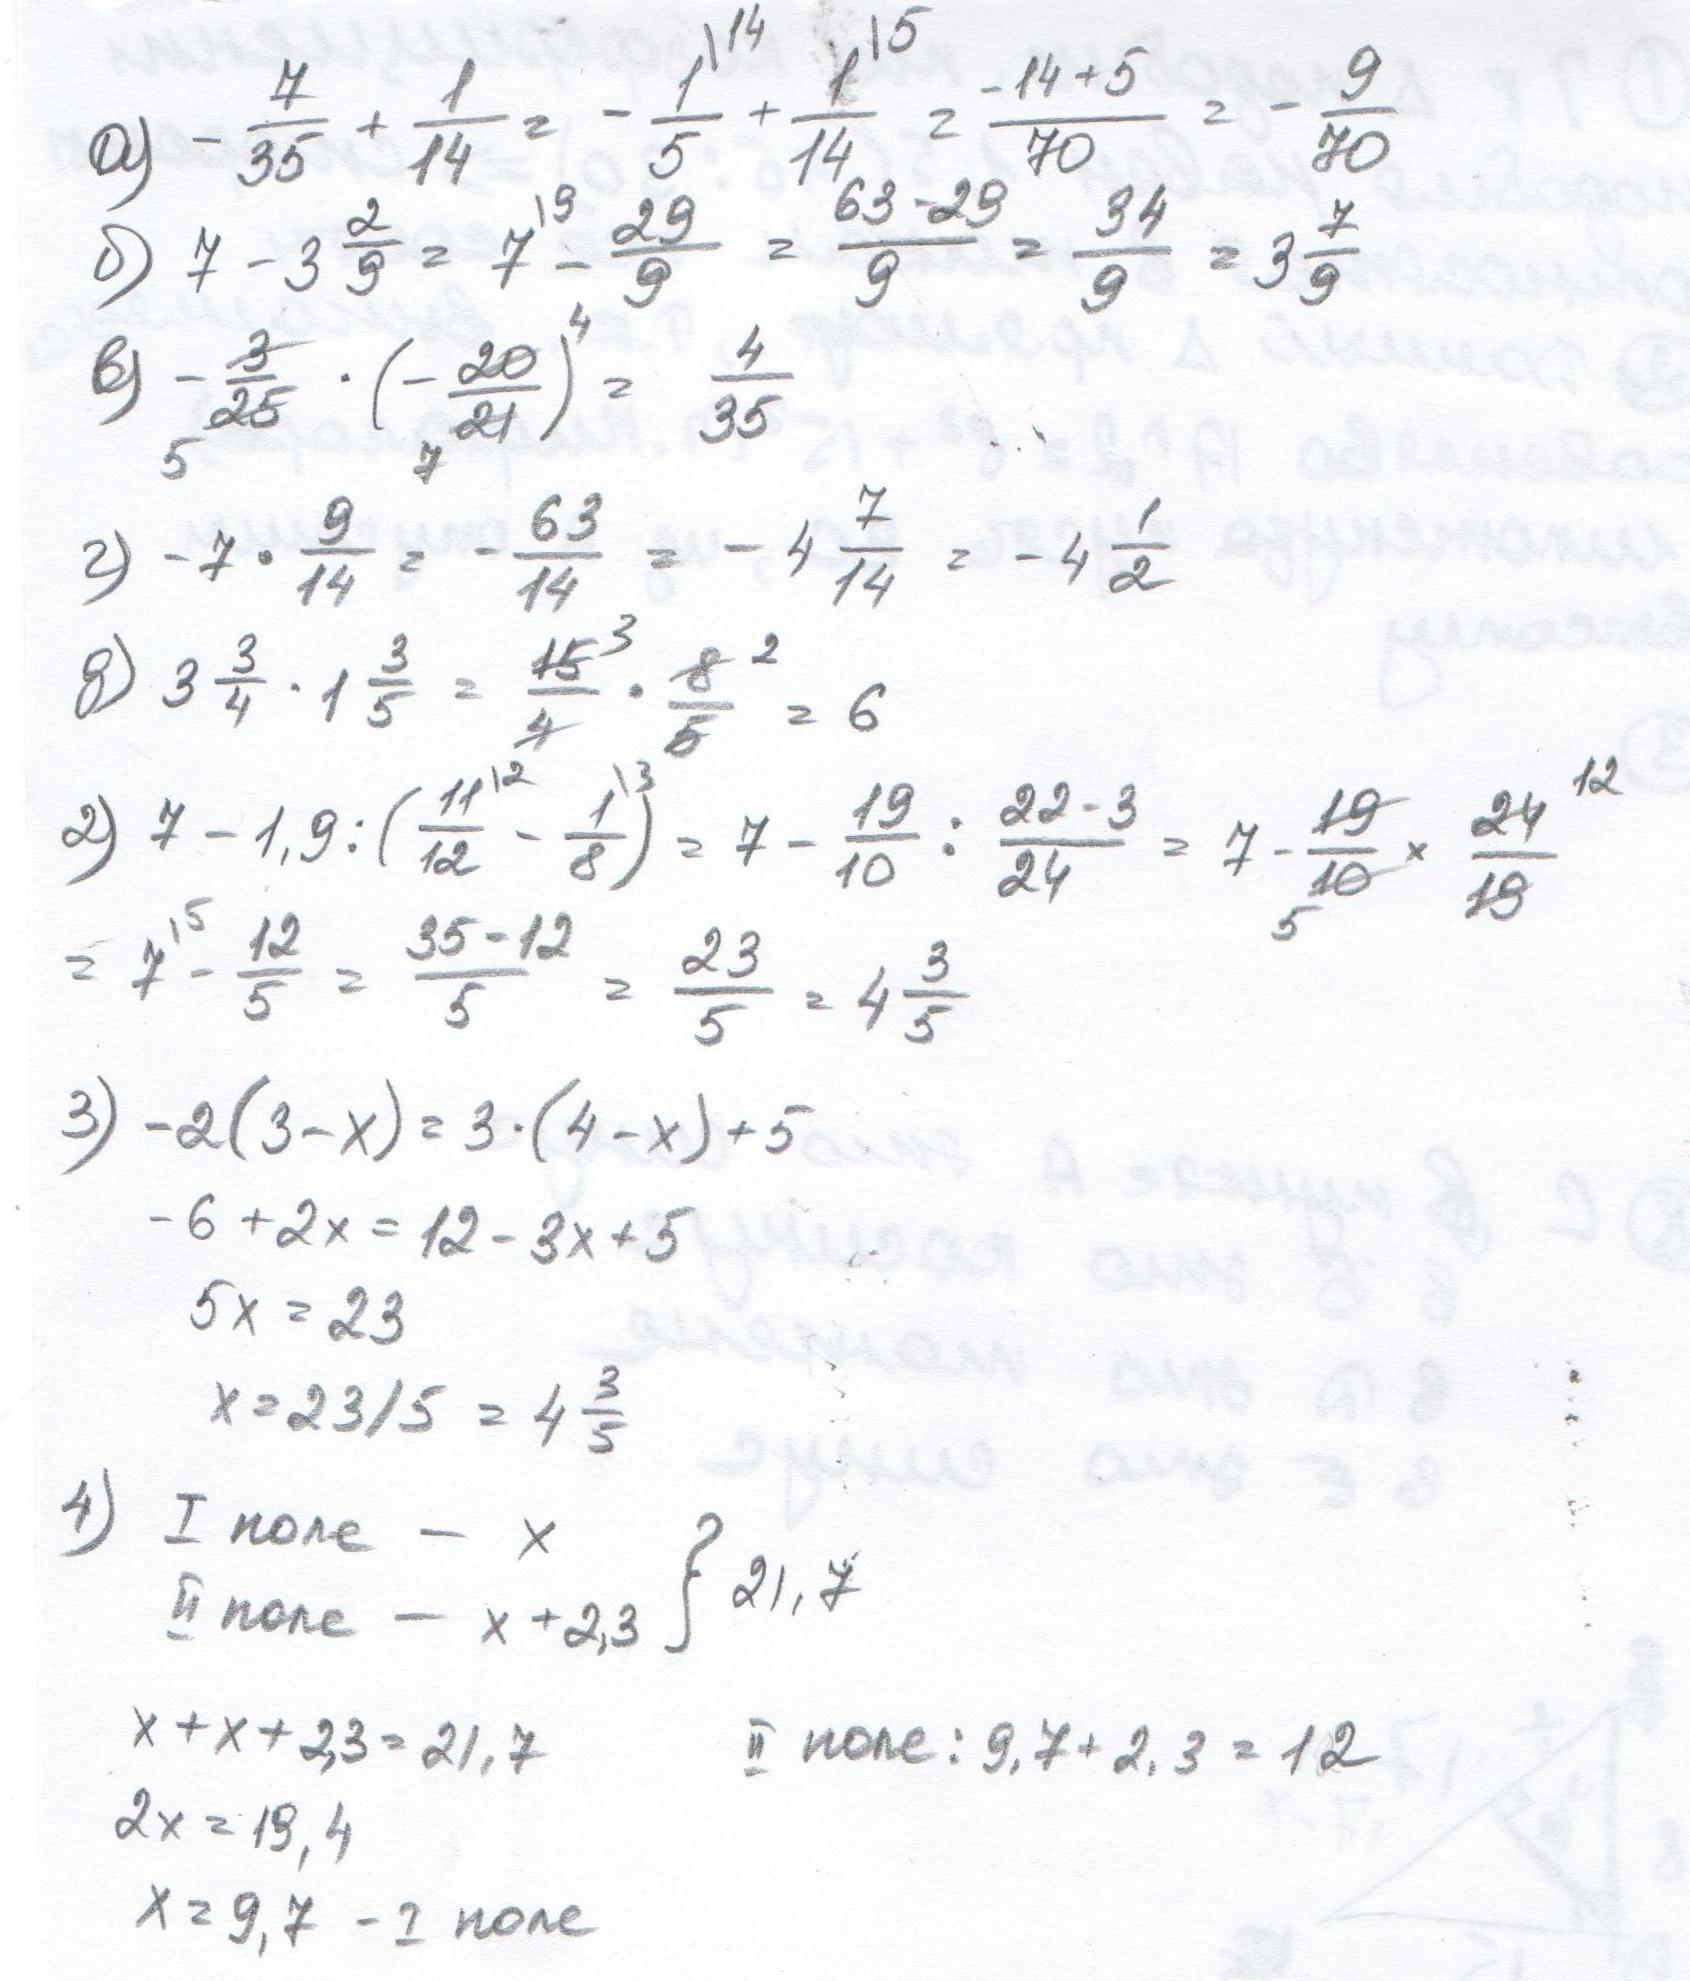 а) - 7/35 + 1/14 = - 1\14/5 + 1\5/14 = -14+5/70 = - 9/70
б) 7 - 3 2/9 = 7\9 - 29/9 = 63-29/9 = 34/9 = 3 7/9
в) - 3/25 5 · (- 20/21 7) 4 = 4/35
г) -7 · 9/14 = - 63/14 = - 4 7/14 = - 4 1/2
д) 3 3/4 · 1 3/5 = 15 3/4 · 8 2/5 = 6
2) 7 - 1,9 : (11\2/12 - 1\3/8) = 7 - 19/10 : 22-3/24 = 7 - 19/10 5 × 24 12/19
= 7\5 - 12/5 = 35-12/5 = 23/5 = 4 3/5
3) -2(3-x) = 3·(4-x)+5
-6+2x=12-3x+5
5x=23
x=23/5 = 4 3/5
4) I поле - x
II поле - x+2,3 } 21,7
x+x+2,3=21,7 II поле: 9,7+2,3=12
2x=19,4
x=9,7 - I поле